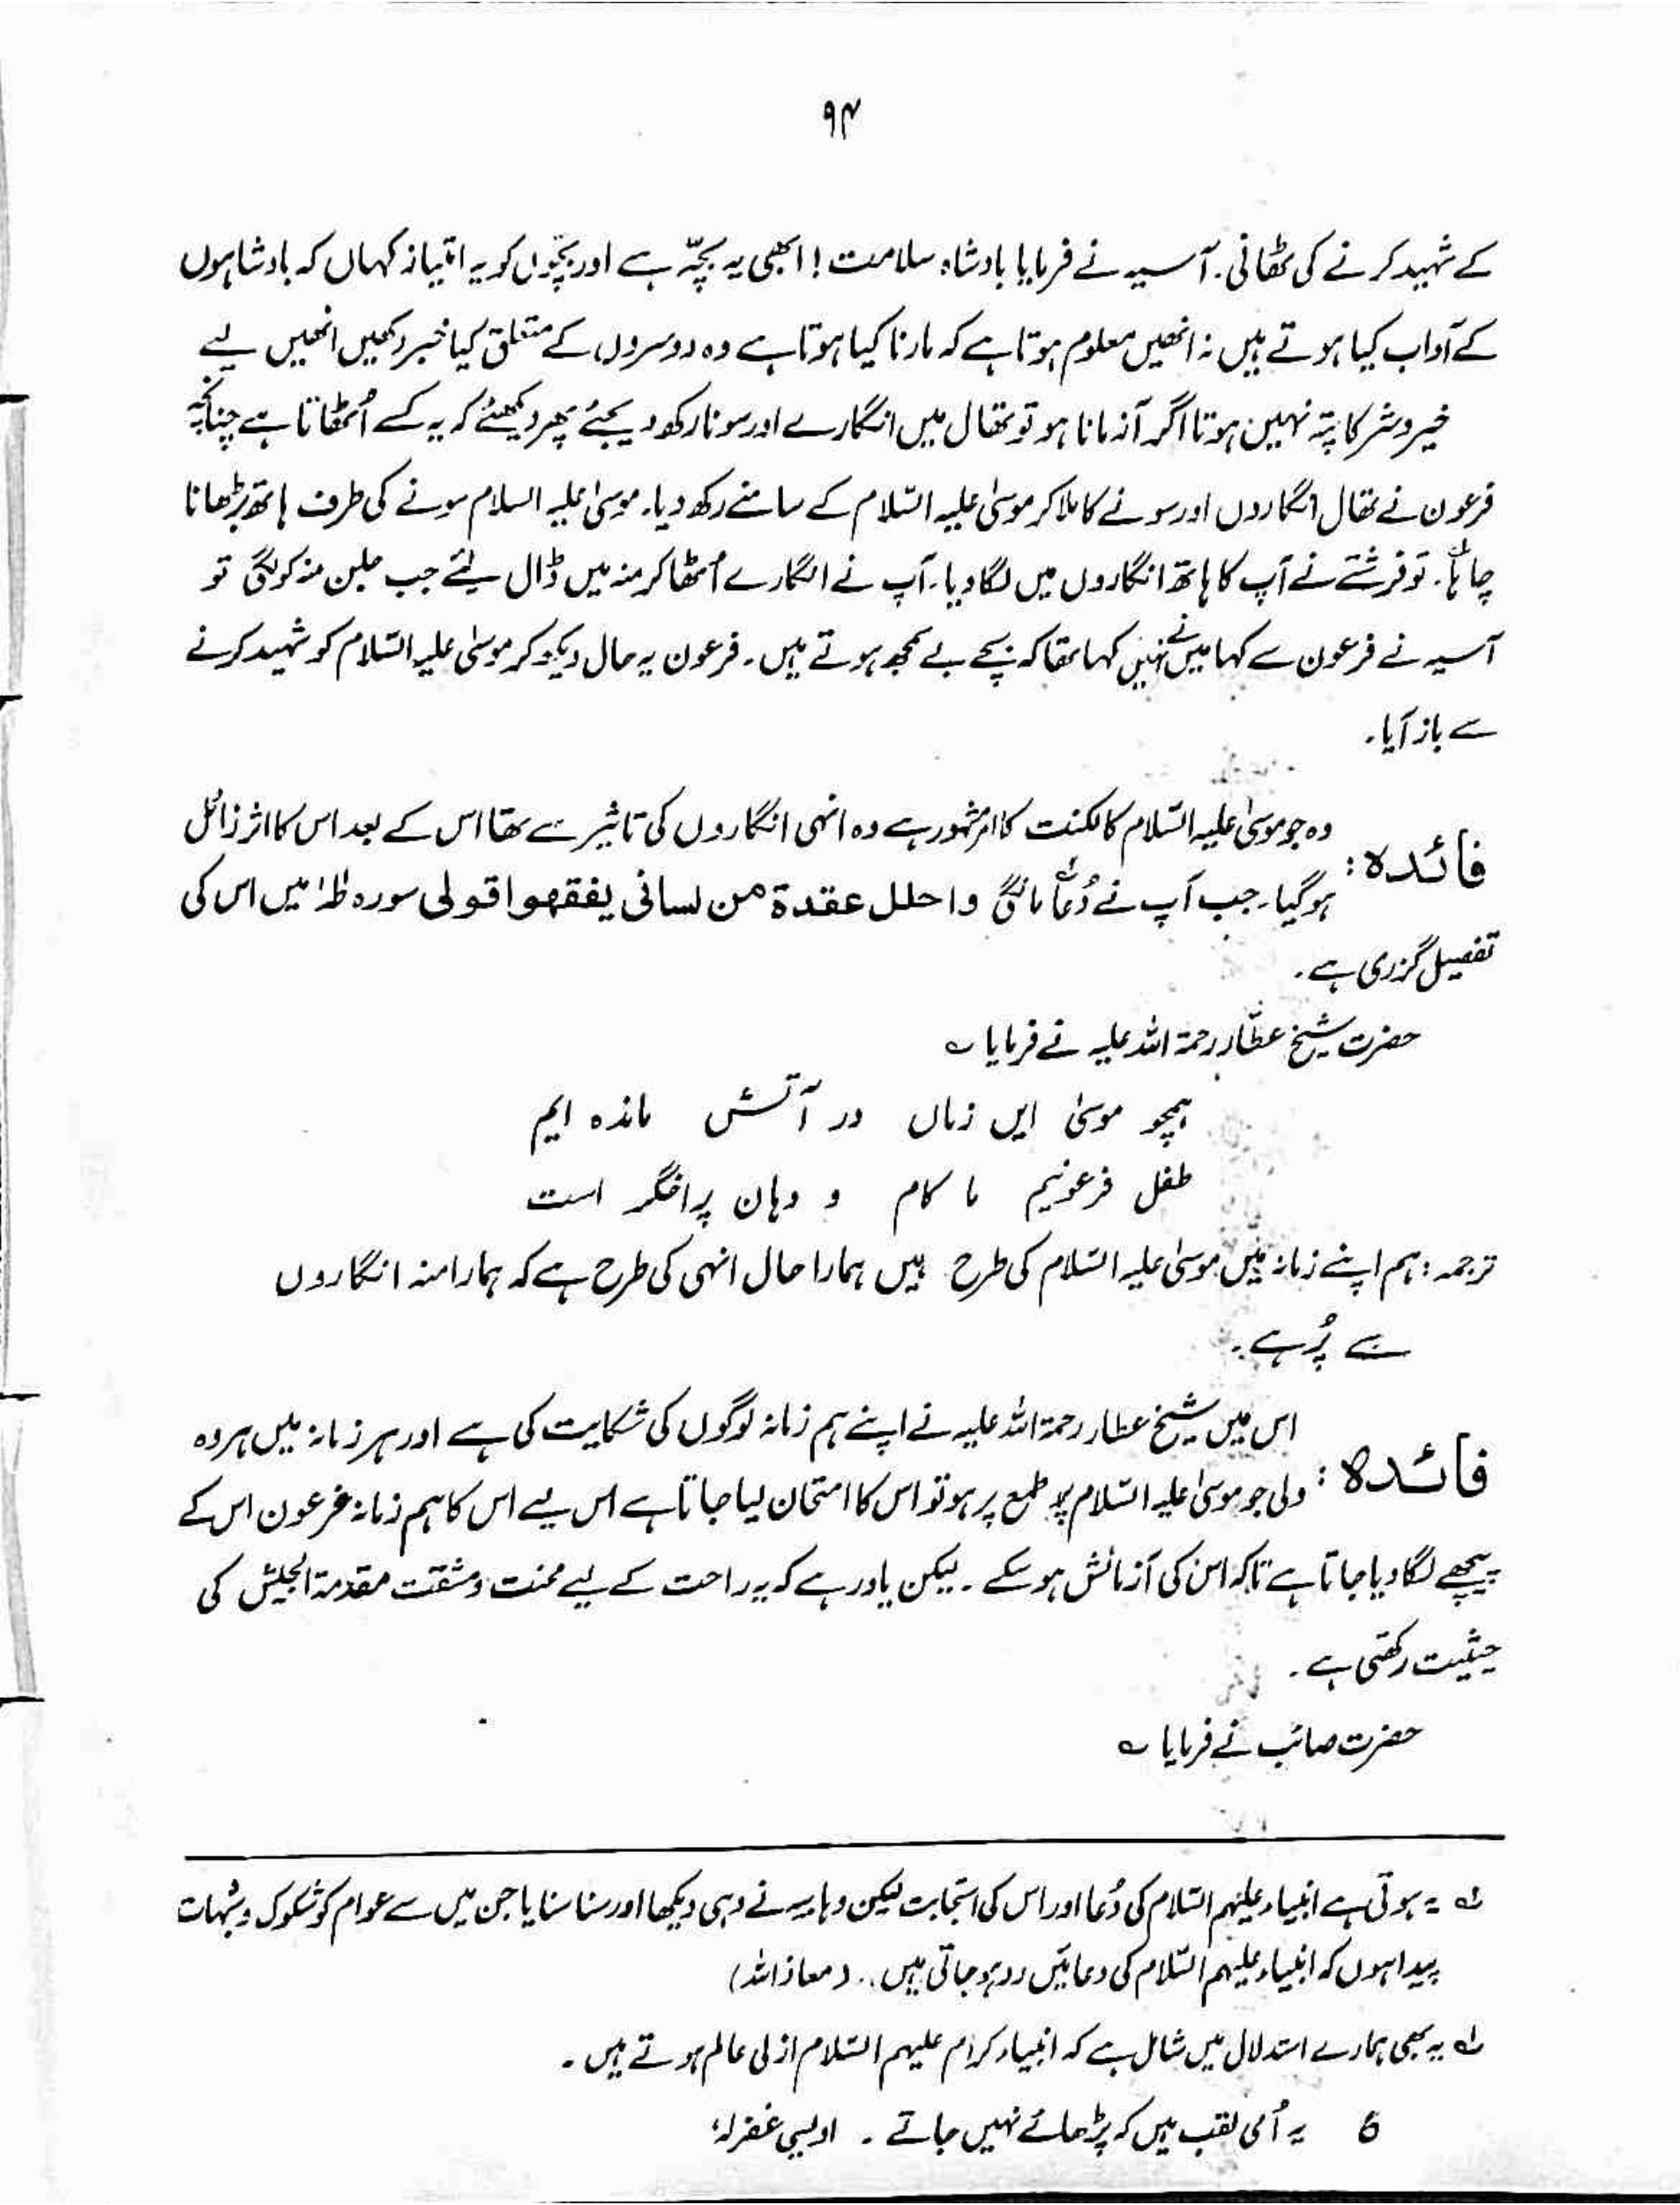 ۹۴
کے شہید کرنے کی ٹھانی۔ آسیہ نے فرمایا بادشاہ سلامت! ابھی یہ بچّہ ہے اور بچّوں کو یہ امتیاز کہاں کہ بادشاہوں
کے آداب کیا ہوتے ہیں نہ انھیں معلوم ہوتا ہے کہ مارنا کیا ہوتا ہے وہ دوسروں کے متعلق کیا خبر رکھیں انھیں لیے
خیر و شر کا پتہ نہیں ہوتا اگر آزمانا ہو تو تھال میں انگارے اور سونا رکھ دیجئے پھر دیکھئے کہ یہ کسے اُٹھاتا ہے چنانچہ
فرعون نے تھال انگاروں اور سونے کا ملا کر موسیٰ علیہ السّلام کے سامنے رکھ دیا۔ موسیٰ علیہ السلام سونے کی طرف ہاتھ بڑھانا
چاہا۔ تو فرشتے نے آپ کا ہاتھ انگاروں میں لگا دیا۔ آپ نے انگارے اُٹھا کر منہ میں ڈال لئے جب جلن منہ کو لگی تو
آسیہ نے فرعون سے کہا میں نے نہیں کہا تھا کہ بچے بے سمجھ ہوتے ہیں۔ فرعون یہ حال دیکھ کر موسیٰ علیہ السّلام کو شہید کرنے
سے باز آیا۔
فائدہ: وہ جو موسیٰ علیہ السّلام کا لکنت کا امر مشہور ہے وہ انہی انگاروں کی تاثیر سے تھا اس کے بعد اس کا اثر زائل
ہو گیا۔ جب آپ نے دُعا مانگی واحلل عقدة من لسانی یفقھوا قولی سورہ طٰہٰ میں اس کی
تفصیل گزری ہے۔
حضرت شیخ عطّار رحمۃ اللہ علیہ نے فرمایا ؎
ہمچو موسیٰ ایں زماں در آتش ماندہ ایم
طفل فرعونیم ما کام و دہان پر اخگر است
ترجمہ: ہم اپنے زمانہ میں موسیٰ علیہ السّلام کی طرح ہیں ہمارا حال انہی کی طرح ہے کہ ہمارا منہ انگاروں
سے پُر ہے۔
فائدہ: اس میں شیخ عطار رحمۃ اللہ علیہ نے اپنے ہم زمانہ لوگوں کی شکایت کی ہے اور ہر زمانہ میں ہر وہ
ولی جو موسیٰ علیہ السّلام پر طمع پر ہو تو اس کا امتحان لیا جاتا ہے اس لیے اس کا ہم زمانہ فرعون اس کے
پیچھے لگا دیا جاتا ہے تاکہ اس کی آزمائش ہو سکے۔ لیکن یاد رہے کہ یہ راحت کے لیے محنت و مشقت مقدمۃ الجیش کی
حیثیت رکھتی ہے۔
حضرت صائب نے فرمایا ؎
لہ یہ ہوتی ہے انبیاء علیہم السّلام کی دُعا اور اس کی استجابت لیکن وہابیہ نے وہی دیکھا اور سنا سنایا جن میں سے عوام کو شکوک و شبہات
پیدا ہوں کہ انبیاء علیہم السّلام کی دعائیں رد ہو جاتی ہیں۔۔ (معاذ اللہ)
لہ یہ بھی ہمارے استدلال میں شامل ہے کہ انبیاء کرام علیہم السّلام ازلی عالم ہوتے ہیں۔
6 یہ اُمی لقب ہیں کہ پڑھائے نہیں جاتے۔ اویسی غفرلہٗ